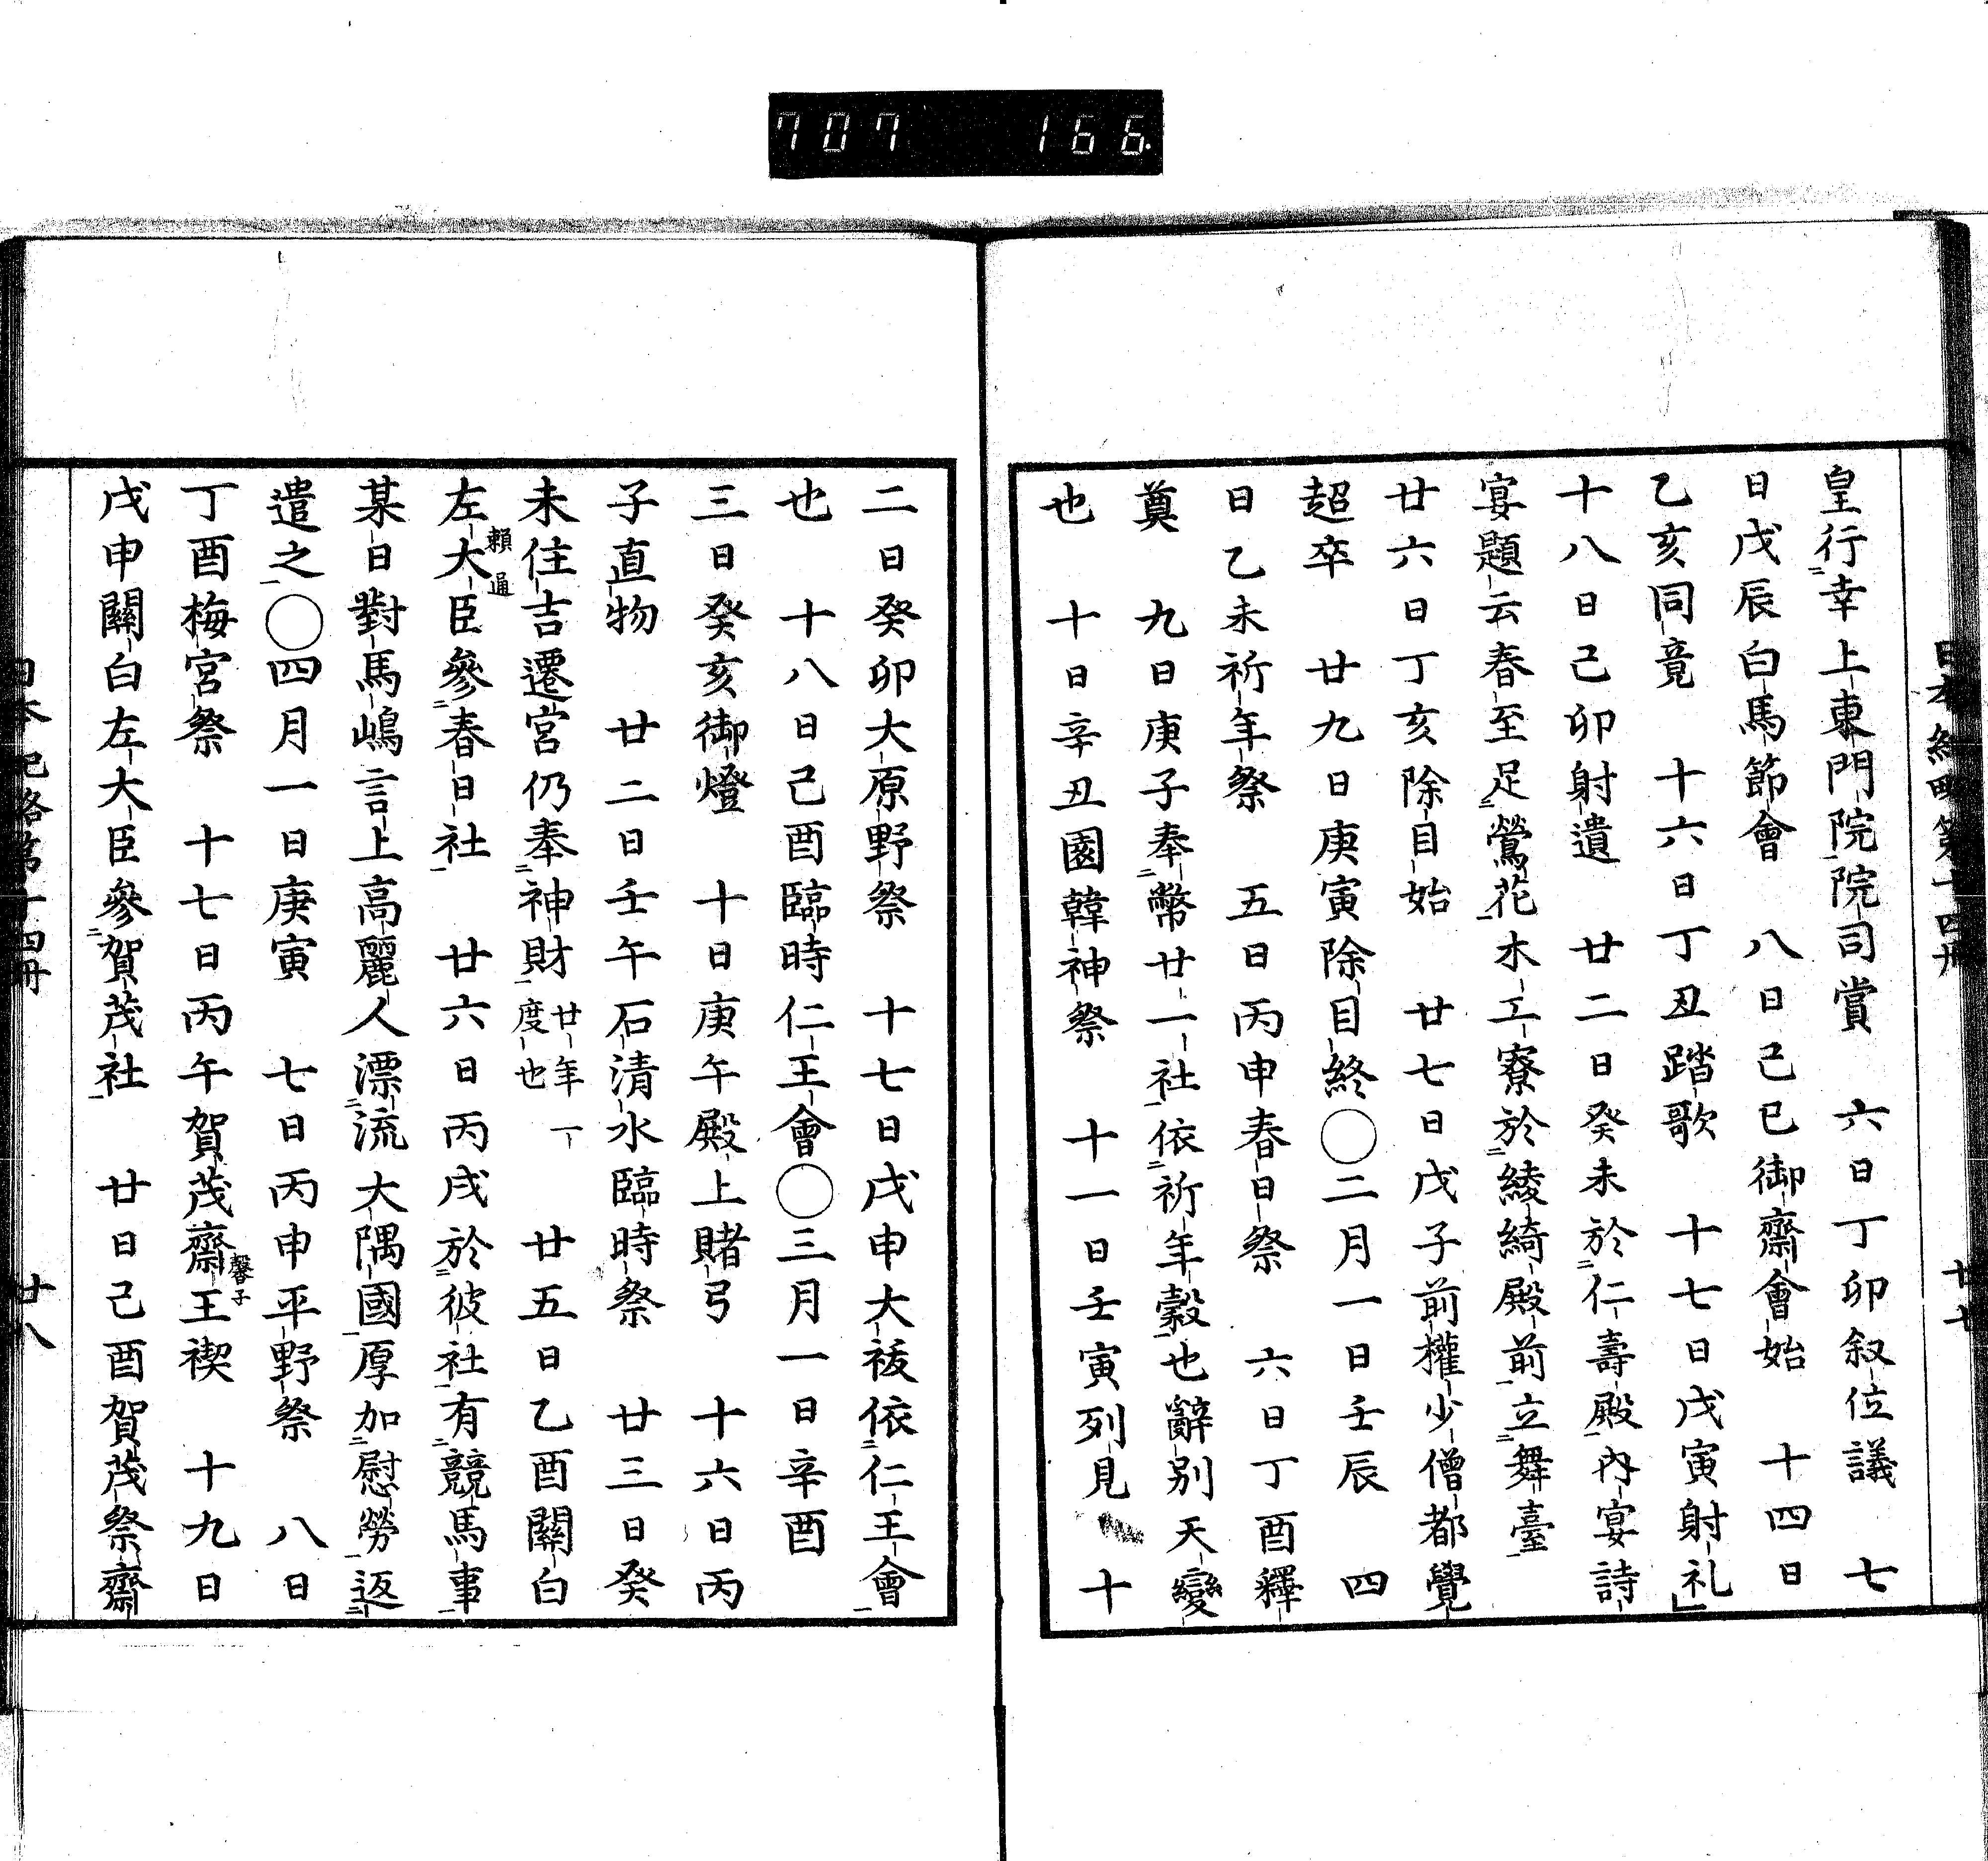 707 166
日本紀略第十四册 廿七
皇行幸上東門院院司賞 六日丁卯叙位議 七
日戊辰白馬節會 八日己巳御齋會始 十四日
乙亥同竟 十六日丁丑踏歌 十七日戊寅射礼
十八日己卯射遺 廿二日癸未於仁壽殿內宴詩
宴題云春至足鶯花木工寮於綾綺殿前立舞臺
廿六日丁亥除目始 廿七日戊子前權少僧都覺
超卒 廿九日庚寅除目終○二月一日壬辰 四
日乙未祈年祭 五日丙申春日祭 六日丁酉釋
奠 九日庚子奉幣廿一社依祈年穀也辭別天變
也 十日辛丑園韓神祭 十一日壬寅列見 十
二日癸卯大原野祭 十七日戊申大祓依仁王會
也 十八日己酉臨時仁王會○三月一日辛酉
三日癸亥御燈 十日庚午殿上賭弓 十六日丙
子直物 廿二日壬午石清水臨時祭 廿三日癸
未住吉遷宮仍奉神財廿年一度也 廿五日乙酉關白
左大臣賴通參春日社 廿六日丙戌於彼社有競馬事
某日對馬嶋言上高麗人漂流大隅國厚加慰勞返
遣之○四月一日庚寅 七日丙申平野祭 八日
丁酉梅宮祭 十七日丙午賀茂齋王馨子禊 十九日
戊申關白左大臣參賀茂社 廿日己酉賀茂祭齋
日本紀略第十四册 廿八